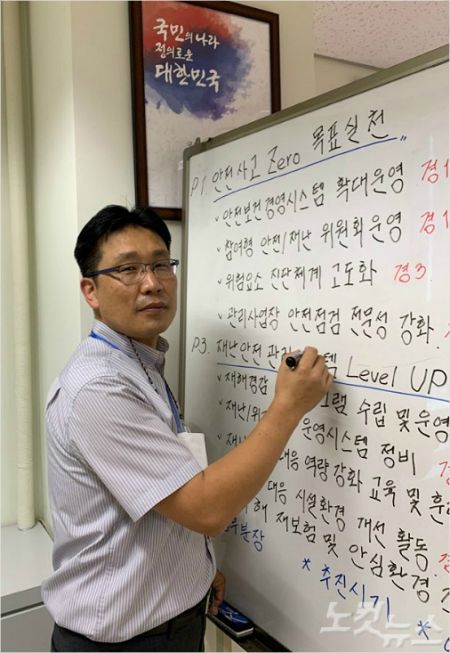 국민의 나라
정의로운
대한민국
P1. 안전사고 Zero 목표실천
✓ 안전보건경영시스템 확대운영 경1
✓ 참여형 안전/재난 위원회운영 경1
✓ 위험요소 진단체계 고도화 경3.
✓ 관리사업장 안전점검 전문성 강화
P3. 재난안전 관리 템 Level UP
✓ 재해경감 램 수립 및 운영
✓ 재난/위 운영시스템 정비
✓ 재난 대응 역량강화 교육 및 훈
대응 시설환경 개선 활동
해 재보험 및 안심환경
분장
* 추진시기
노컷뉴스